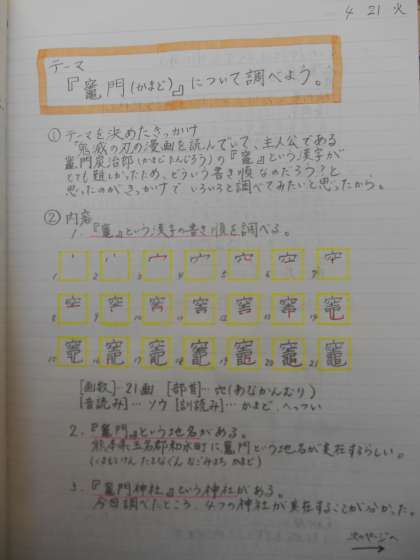 4 21 火
テーマ
『竈門(かまど)』について調べよう。
① テーマを決めたきっかけ
鬼滅の刃の漫画を読んでいて、主人公である
竈門炭治郎(かまど たんじろう)の『竈』という漢字が
とても難しかったため、どういう書き順なのだろう?と
思ったのがきっかけでいろいろと調べてみたいと思ったから。
② 内容
1. 『竈』という漢字の書き順を調べる。
1 2 3 4 5 6 7
8 9 10 11 12 13 14
15 16 17 18 19 20 21
[画数]…21画 [部首]…穴(あなかんむり)
[音読み]…ソウ [訓読み]…かまど、へっつい
2. 『竈門』という地名がある。
熊本県玉名郡和水町に竈門という地名が実在するらしい。
(くまもとけん たまなぐん なごみまち かまど)
3. 『竈門神社』という神社がある。
今回調べたところ、4つの神社が実在することがわかった。
次のページへ